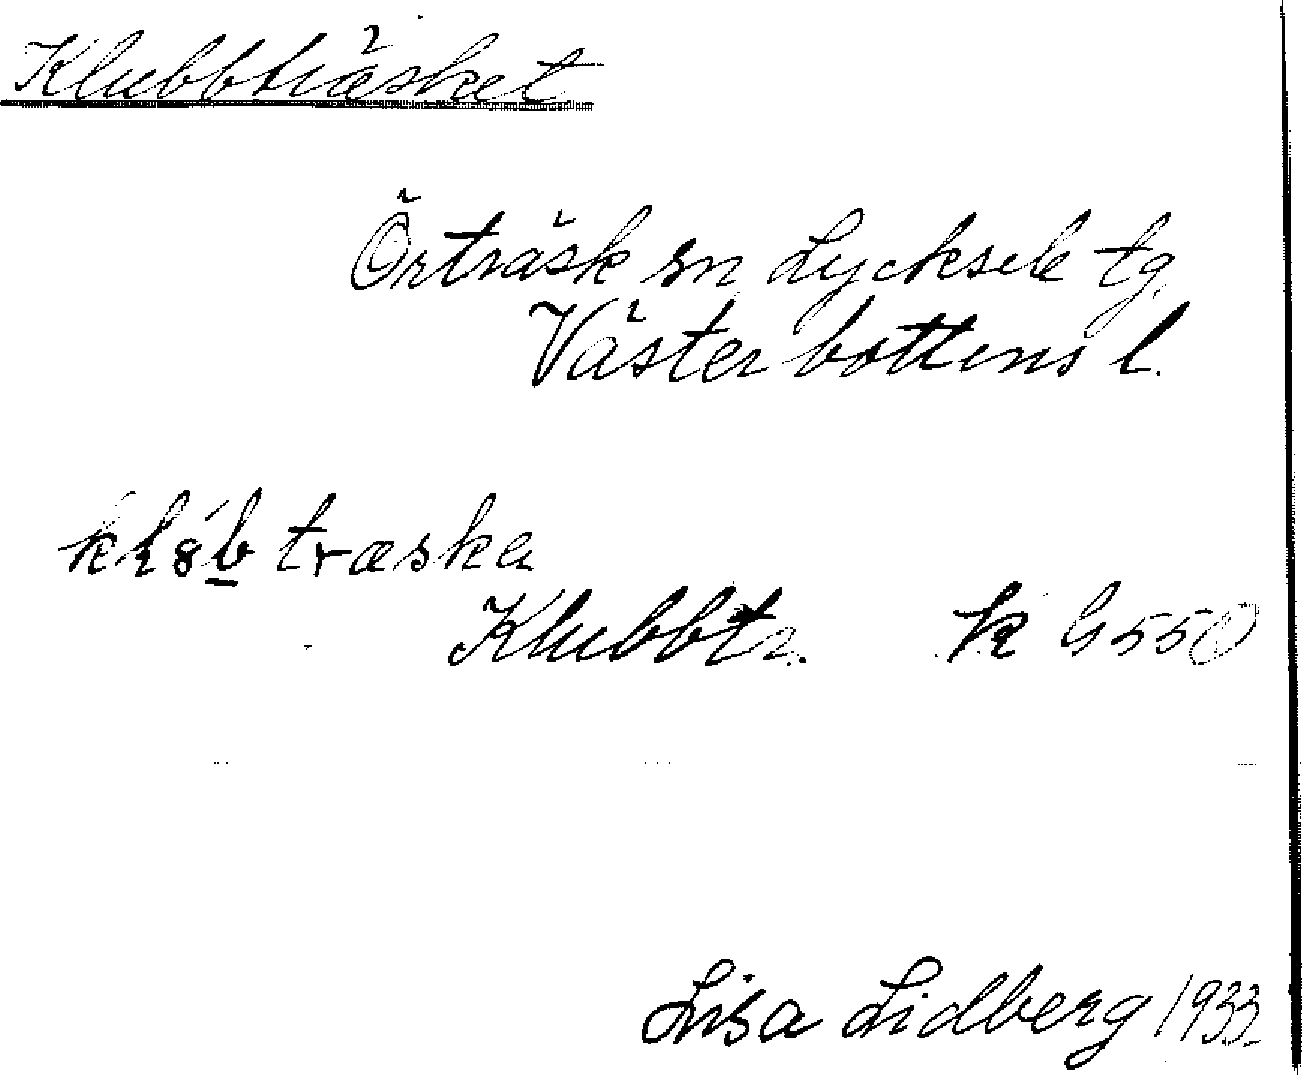 Klubbträsket
Örträsk sn Lycksele tg.
Västerbottens l.
træska
Klubbtr. k G 550
Lisa Lidberg 1933